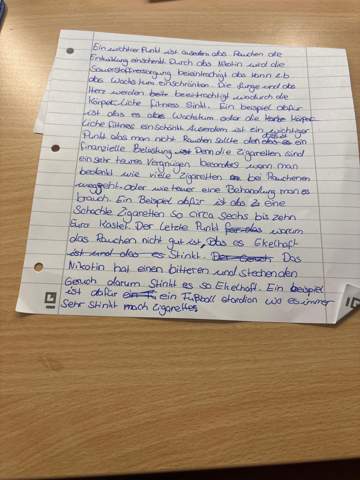 Ein wichtiger Punkt ist auserdem das Rauchen die
Entwicklung einschränkt. Durch das Nikotin wird die
Sauerstoffversorgung beeinträchtigt das kann z.b
das Wachstum einschränken. Die lunge und das
Herz werden beeinträchtigt wodurch die
Körperliche fitness Sinkt. Ein beispiel dafür
ist das es das Wachstum oder die Körper
liche fitness einschänkt. Ausserdem ist ein wichtiger
Punkt das man nicht Rauchen sollte den das ist ein
finanzielle Belastung ist. Denn die Zigaretten sind
ein sehr teures Vergnügen besonders wenn man
bedenkt wie viele Zigaretten bei Rauchenen
weggeht. oder wie teuer eine Behandlung man es
brauch. Ein Beispiel dafür ist das eine
Schachte Zigaretten so circa sechs bis zehn
Euro Kostet. Der Letzte Punkt warum
das Rauchen nicht gut ist, Das es Ekelhaft
ist und das es Stinkt. Das
Nikotin hat einen bitteren und stechenden
Geruch darum Stinkt es so Ekelhaft. Ein beispiel
ist dafür ein Fußball stardion wo es immer
Sehr stinkt nach Zigarettes